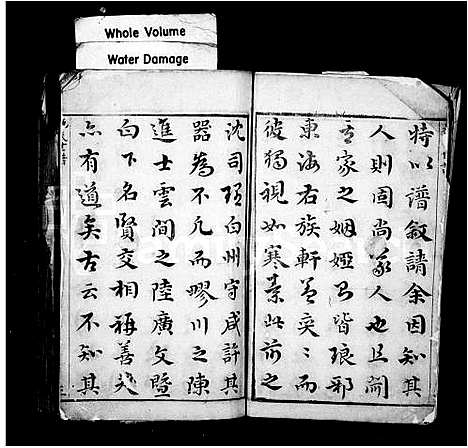 Whole Volume
Water Damage
特以譜敘請余因知其
人則固尚義人也且聞
其家之姻婭乃皆琅邪
東海右族軒蓋奕〻而
彼獨視如寒素此前之
沈司理白州守咸許其
器為不凡而㵳川之陳
進士雲間之陸廣文暨
白下名賢交相稱善矣
亦有道矣古云不知其